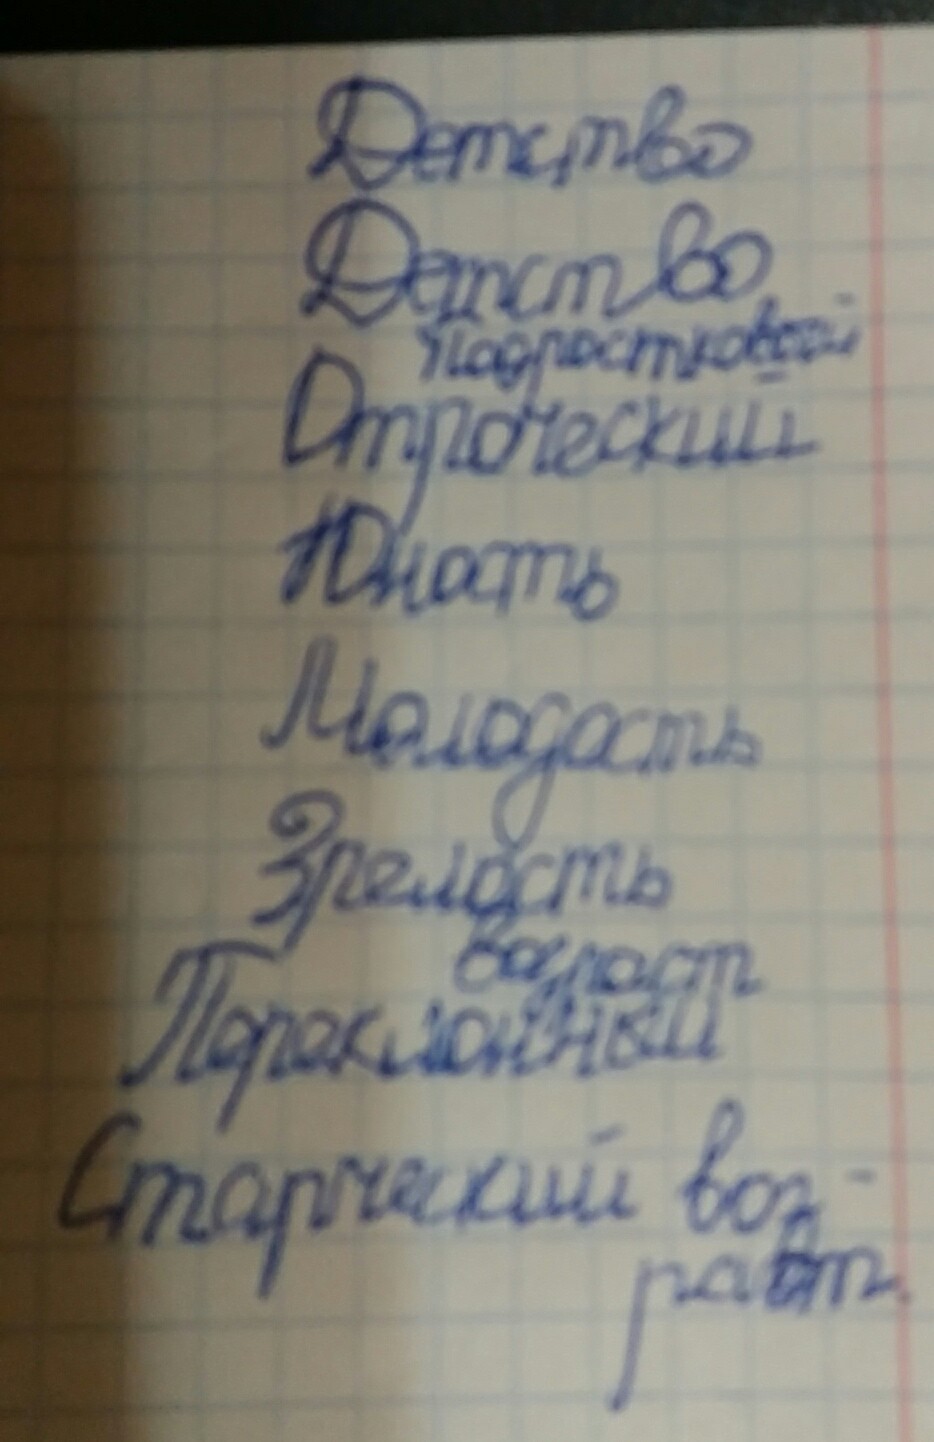 Детство
Детство
подростковой
Отроческий
Юность
Молодость
Зрелость
возраст
Пораклонный
Старческий воз-
раст.